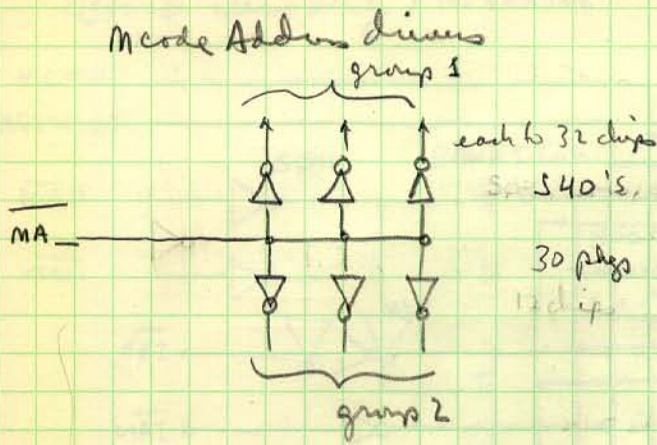 Mcode Address drivers
group 1
each to 32 chips
S40's.
MA_
30 pkgs
12 chips
group 2